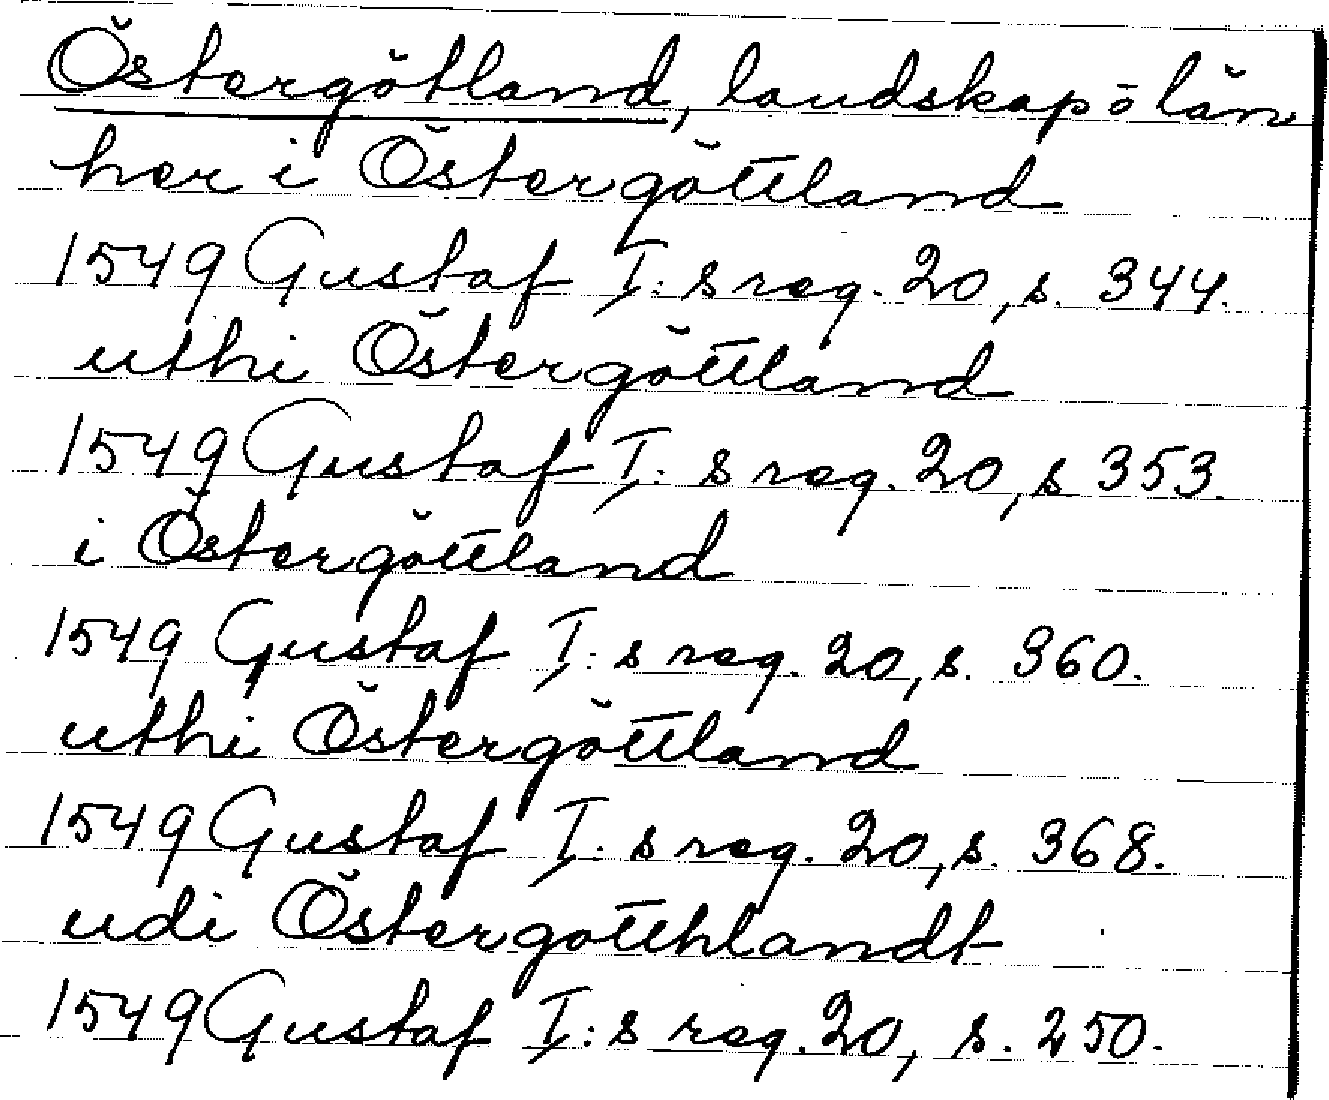 Östergötland, landskap o län
her i Östergöttland
1549 Gustaf I:s reg. 20, s. 344.
uthi Östergöttland
1549 Gustaf I:s reg. 20, s 353.
i Östergöttland
1549 Gustaf I:s reg. 20, s. 360.
uthi Östergöttland
1549 Gustaf I:s reg. 20, s. 368.
udi Östergotthlandt
1549 Gustaf I:s reg. 20, s. 250.